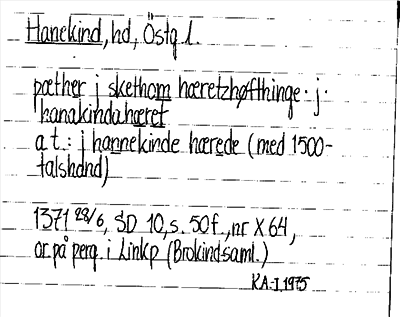 Hanekind, hd, Östg. l.
pæther j skethom hæretzhøfthinge · j ·
hanakindahæret
a t.: j hannekinde hærede (med 1500-
talshand)
1371 28/6, SD 10, s. 50 f., nr X 64,
or. på perg. i Linkp (Brokindsaml.)
KA-I.1975